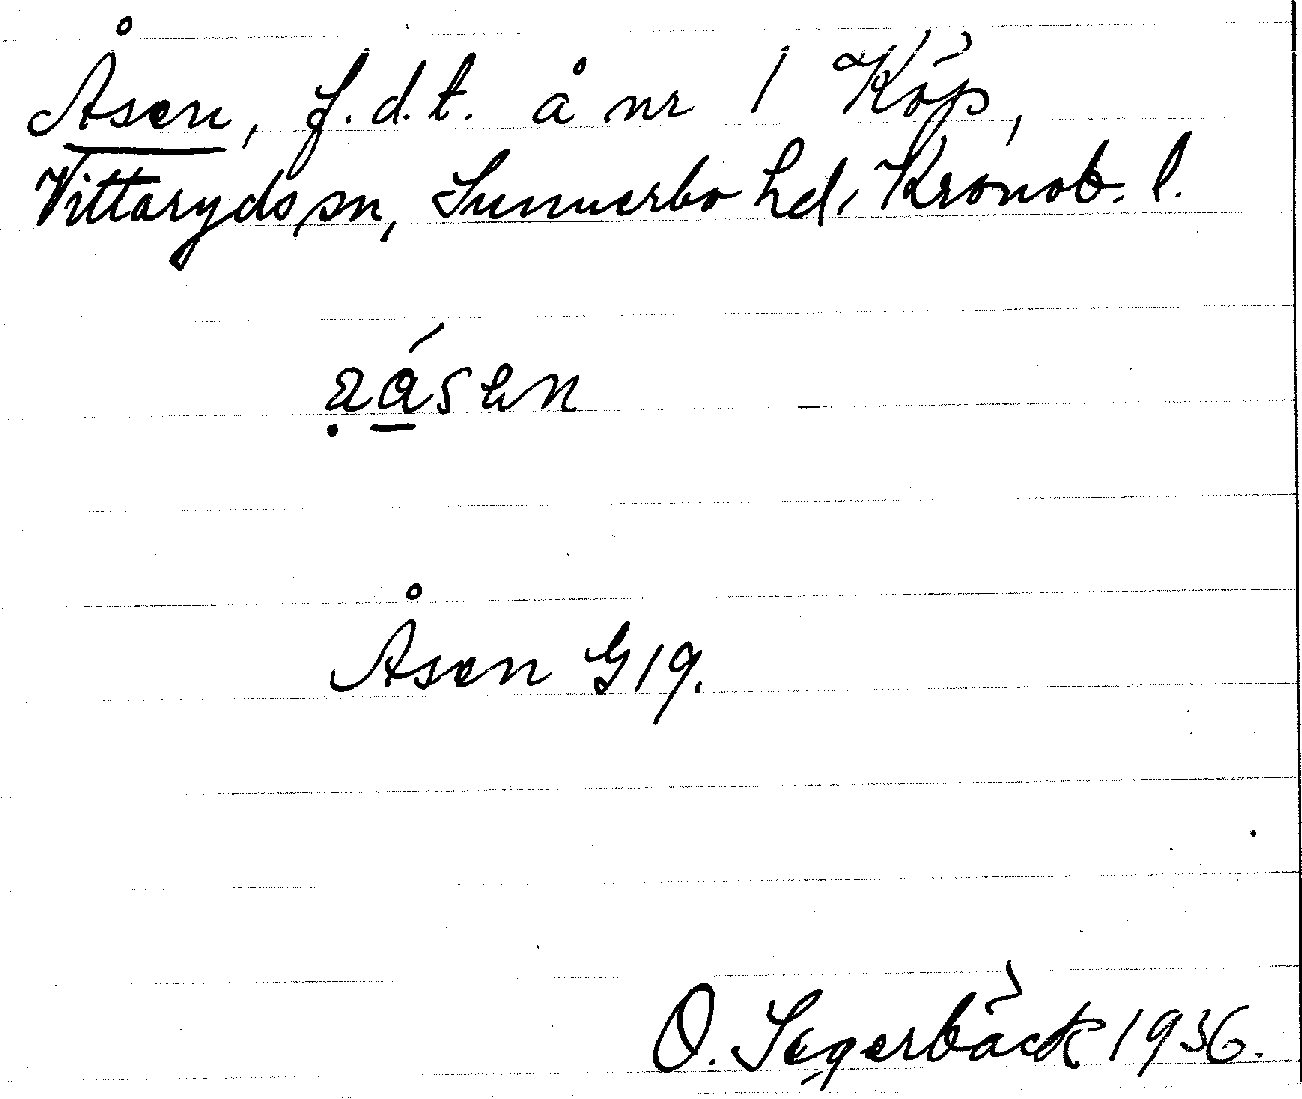 Åsen, f.d.t. å nr 1 Köp,
Vittaryds sn, Sunnerbo hd, Kronob. l.
ạá̱sen
Åsen G 19.
O. Segerbäck 1936.